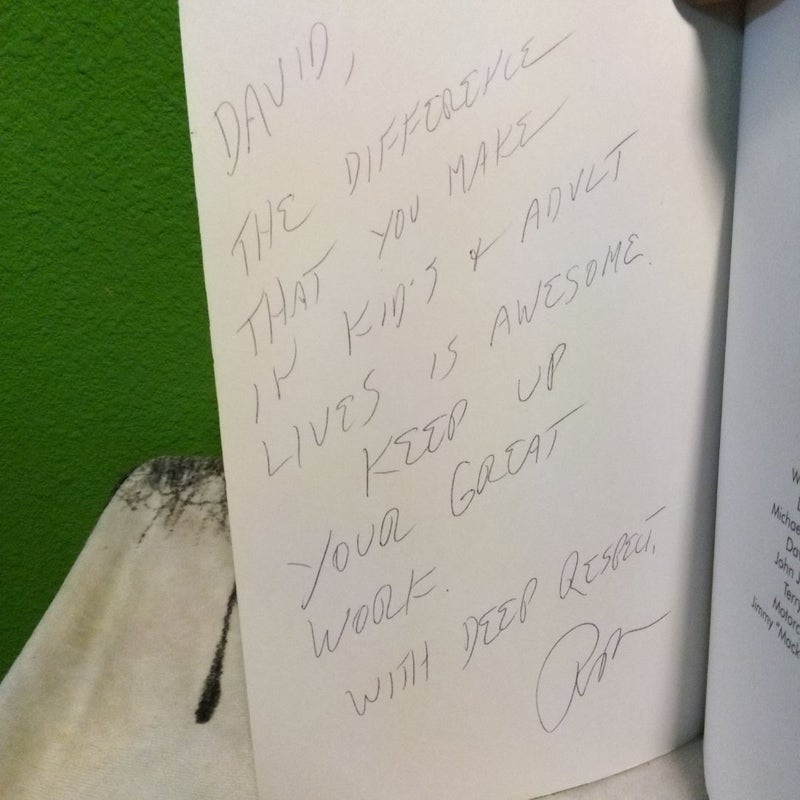 DAVID,
THE DIFFERENCE
THAT YOU MAKE
IN KID'S & ADULT
LIVES IS AWESOME.
KEEP UP
YOUR GREAT
WORK.
WITH DEEP RESPECT,
Michae
John
Jimmy "Mack